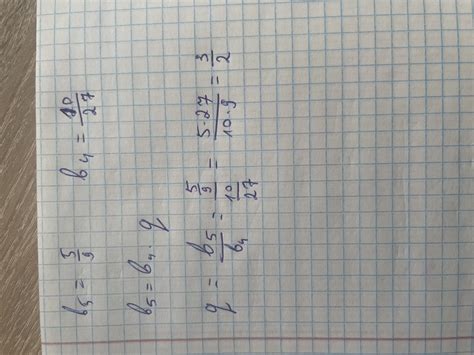 b₅ = 5/9   b₄ = 10/27
b₅ = b₄ · q
q = b₅/b₄ = (5/9)/(10/27) = (5·27)/(10·9) = 3/2